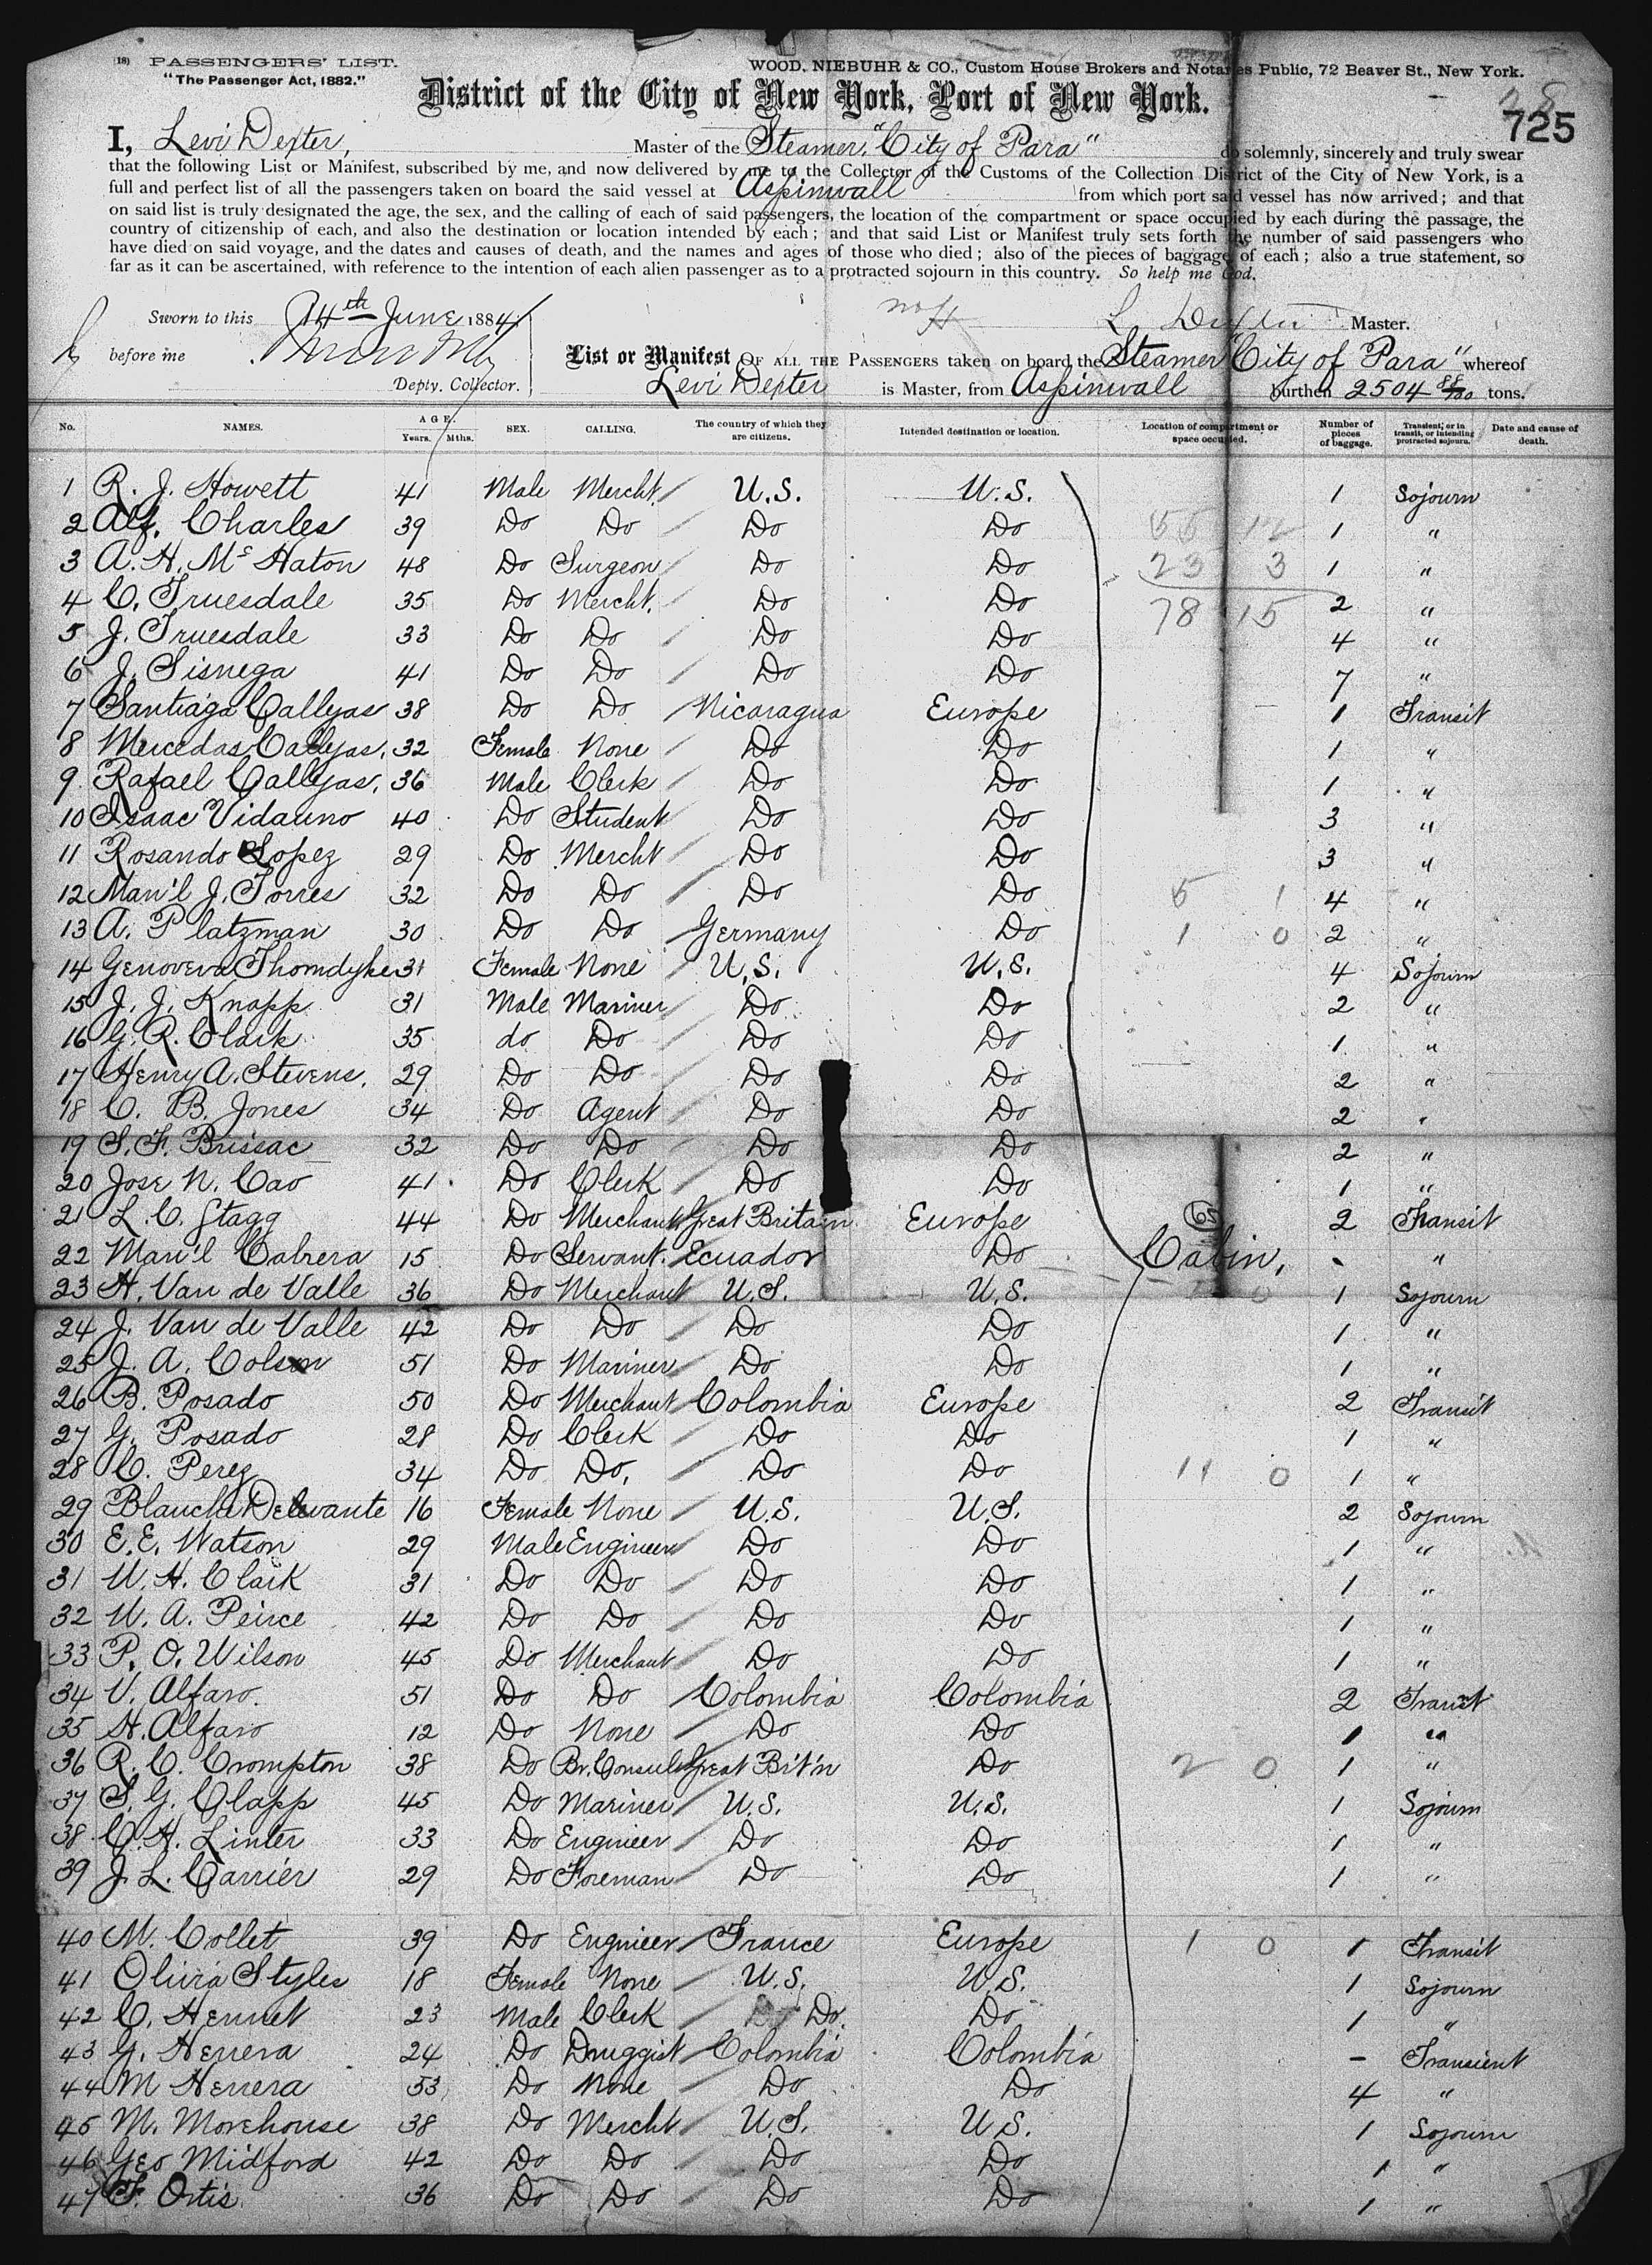 (18) PASSENGERS' LIST.
"The Passenger Act, 1882."
WOOD, NIEBUHR & CO., Custom House Brokers and Notaries Public, 72 Beaver St., New York.
District of the City of New York, Port of New York.
28
725
I, Levi Dexter, Master of the Steamer, "City of Para" do solemnly, sincerely and truly swear
that the following List or Manifest, subscribed by me, and now delivered by me to the Collector of the Customs of the Collection District of the City of New York, is a
full and perfect list of all the passengers taken on board the said vessel at Aspinwall from which port said vessel has now arrived; and that
on said list is truly designated the age, the sex, and the calling of each of said passengers, the location of the compartment or space occupied by each during the passage, the
country of citizenship of each, and also the destination or location intended by each; and that said List or Manifest truly sets forth the number of said passengers who
have died on said voyage, and the dates and causes of death, and the names and ages of those who died; also of the pieces of baggage of each; also a true statement, so
far as it can be ascertained, with reference to the intention of each alien passenger as to a protracted sojourn in this country. So help me God.
Sworn to this 14th June 1884
L Dexter Master.
before me
Depty. Collector.
List or Manifest OF ALL THE PASSENGERS taken on board the Steamer "City of Para" whereof
Levi Dexter is Master, from Aspinwall burthen 2504 88/100 tons.
No. NAMES. AGE. Years. Mths. SEX. CALLING. The country of which they are citizens. Intended destination or location. Location of compartment or space occupied. Number of pieces of baggage. Transient, or in transit, or intending protracted sojourn. Date and cause of death.
1 R. J. Howett 41 Male Mercht. U.S. U.S. 1 Sojourn
2 Alf. Charles 39 Do Do Do Do 55 12 1 "
3 A. H. Mc Haton 48 Do Surgeon Do Do 23 3 1 "
4 C. Truesdale 35 Do Mercht. Do Do 78 15 2 "
5 J. Truesdale 33 Do Do Do Do 4 "
6 J. Sisnega 41 Do Do Do Do 7 "
7 Santiaga Callyas 38 Do Do Nicaragua Europe 1 Transit
8 Mercedas Callyas, 32 Female None Do Do 1 "
9 Rafael Callyas, 36 Male Clerk Do Do 1 "
10 Isaac Vidauno 40 Do Student Do Do 3 "
11 Rosando Lopez 29 Do Mercht Do Do 3 "
12 Man'l J. Torres 32 Do Do Do Do 5 1 4 "
13 A. Platzman 30 Do Do Germany Do 1 0 2 "
14 Genoveva Thomdyke 31 Female None U.S. U.S. 4 Sojourn
15 J. J. Knapp 31 Male Mariner Do Do 2 "
16 G. R. Clark 35 do Do Do Do 1 "
17 Henry A. Stevens, 29 Do Do Do Do 2 "
18 C. B. Jones 34 Do Agent Do Do 2 "
19 S. F. Brissac 32 Do Do Do Do 2 "
20 Jose N. Cao 41 Do Clerk Do Do 1 "
21 L. C. Stagg 44 Do Merchant Great Britain Europe 65 2 Transit
22 Man'l Cabrera 15 Do Servant. Ecuador Do Cabin, - "
23 H. Van de Valle 36 Do Merchant U.S. U.S. 1 Sojourn
24 J. Van de Valle 42 Do Do Do Do 1 "
25 J. A. Colson 51 Do Mariner Do Do 1 "
26 B. Posado 50 Do Merchant Colombia Europe 2 Transit
27 G. Posado 28 Do Clerk Do Do 1 "
28 C. Perez 34 Do Do, Do Do 11 0 1 "
29 Blanche Delevante 16 Female None U.S. U.S. 2 Sojourn
30 E. E. Watson 29 Male Engineer Do Do 1 "
31 W. H. Clark 31 Do Do Do Do 1 "
32 W. A. Peirce 42 Do Do Do Do 1 "
33 P. O. Wilson 45 Do Merchant Do Do 1 "
34 V. Alfaro. 51 Do Do Colombia Colombia 2 Transit
35 H. Alfaro 12 Do None Do Do 1 "
36 R. C. Crompton 38 Do Br. Consul Great Brit'n Do 2 0 1 "
37 S. G. Clapp 45 Do Mariner U.S. U.S. 1 Sojourn
38 C. H. Linter 33 Do Engineer Do Do 1 "
39 J. L. Carrier 29 Do Foreman Do Do 1 "
40 M. Collet 39 Do Engineer France Europe 1 0 1 Transit
41 Olivia Styles 18 Female None U.S. U.S. 1 Sojourn
42 C. Hennet 23 Male Clerk Do. Do 1 "
43 G. Herrera 24 Do Druggist Colombia Colombia - Transient
44 M Herrera 53 Do None Do Do 4 "
45 M. Morehouse 38 Do Mercht U.S. U.S. 1 Sojourn
46 Geo Midford 42 Do Do Do Do 1 "
47 F. Ortis 36 Do Do Do Do 1 "